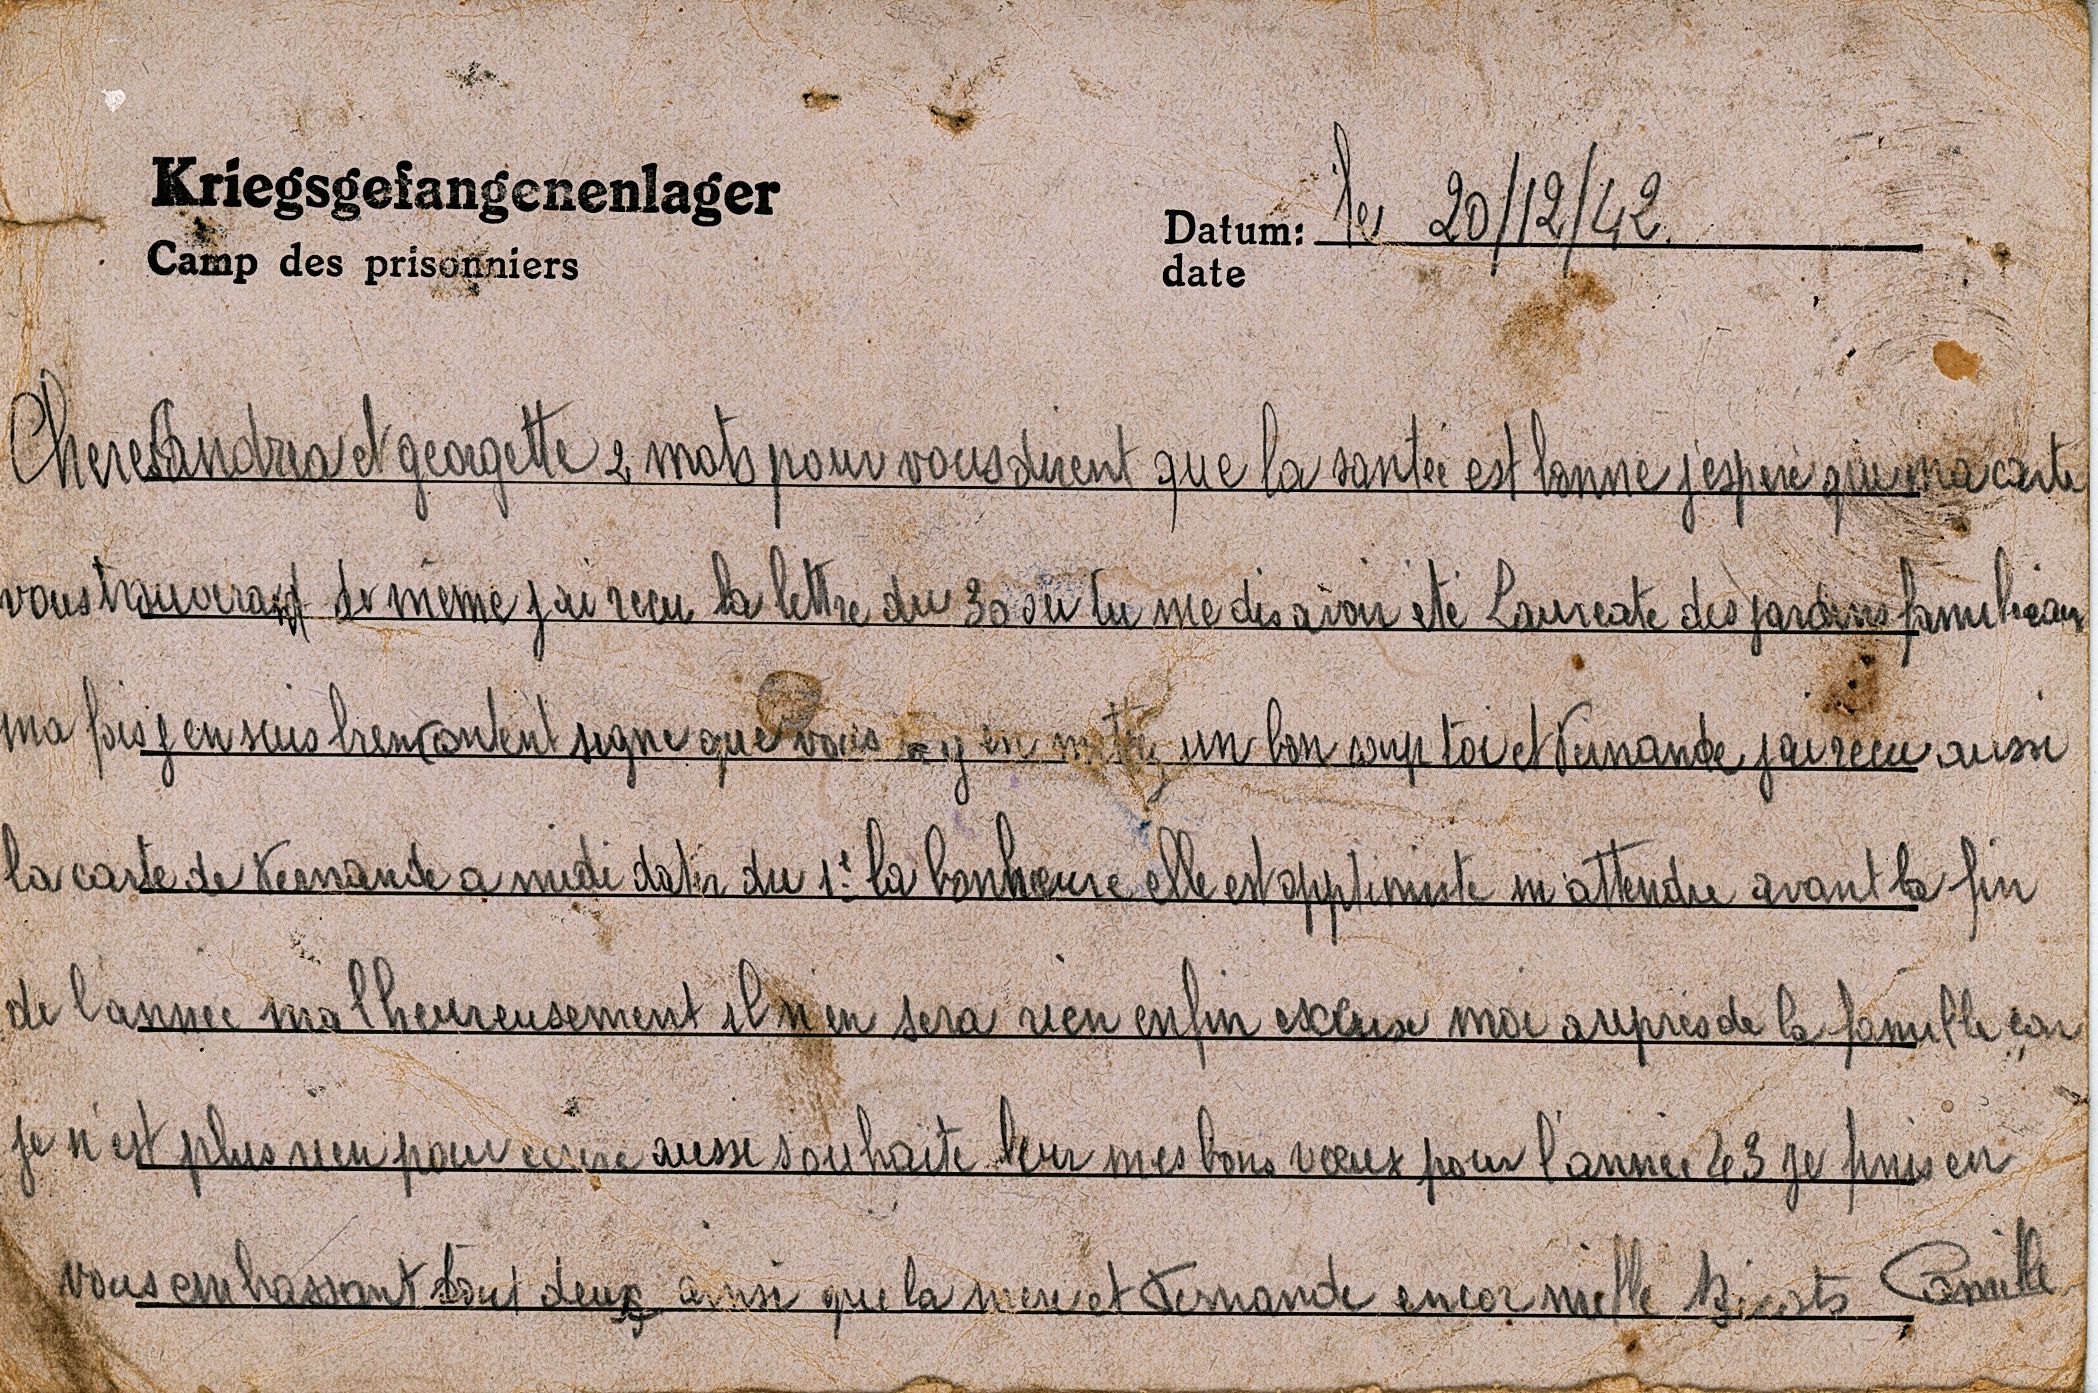 Kriegsgefangenenlager
Camp des prisonniers
Datum: le 20/12/42
date
Cheres Andrea et georgette 2 mots pour vous dirent que la santée est bonne j'espere que ma carte
vous trouverait de même j'ai recu la lettre du 30 ou tu me dis avoir été Laureate des jardins familieaux
ma fois j en suis bien content signe que vous y en mettez un bon coup toi et Fernande j ai recu aussi
la carte de Fernande a midi dater du 1er la bonheure elle est opptimiste m'attendre avant la fin
de l'année malheureusement il n'en sera rien enfin excuse moi aupres de la famille car
je n'est plus rien pour ecrire aussi souhaite leur mes bons vœux pour l'année 43 je finis en
vous embrassant tout deux ainsi que la mere et Fernande encor mille Camille